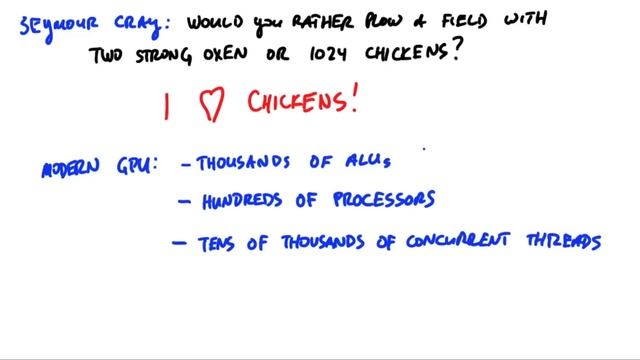 SEYMOUR CRAY: WOULD YOU RATHER PLOW A FIELD WITH
TWO STRONG OXEN OR 1024 CHICKENS?
I ♡ CHICKENS!
MODERN GPU: - THOUSANDS OF ALUs
- HUNDREDS OF PROCESSORS
- TENS OF THOUSANDS OF CONCURRENT THREADS